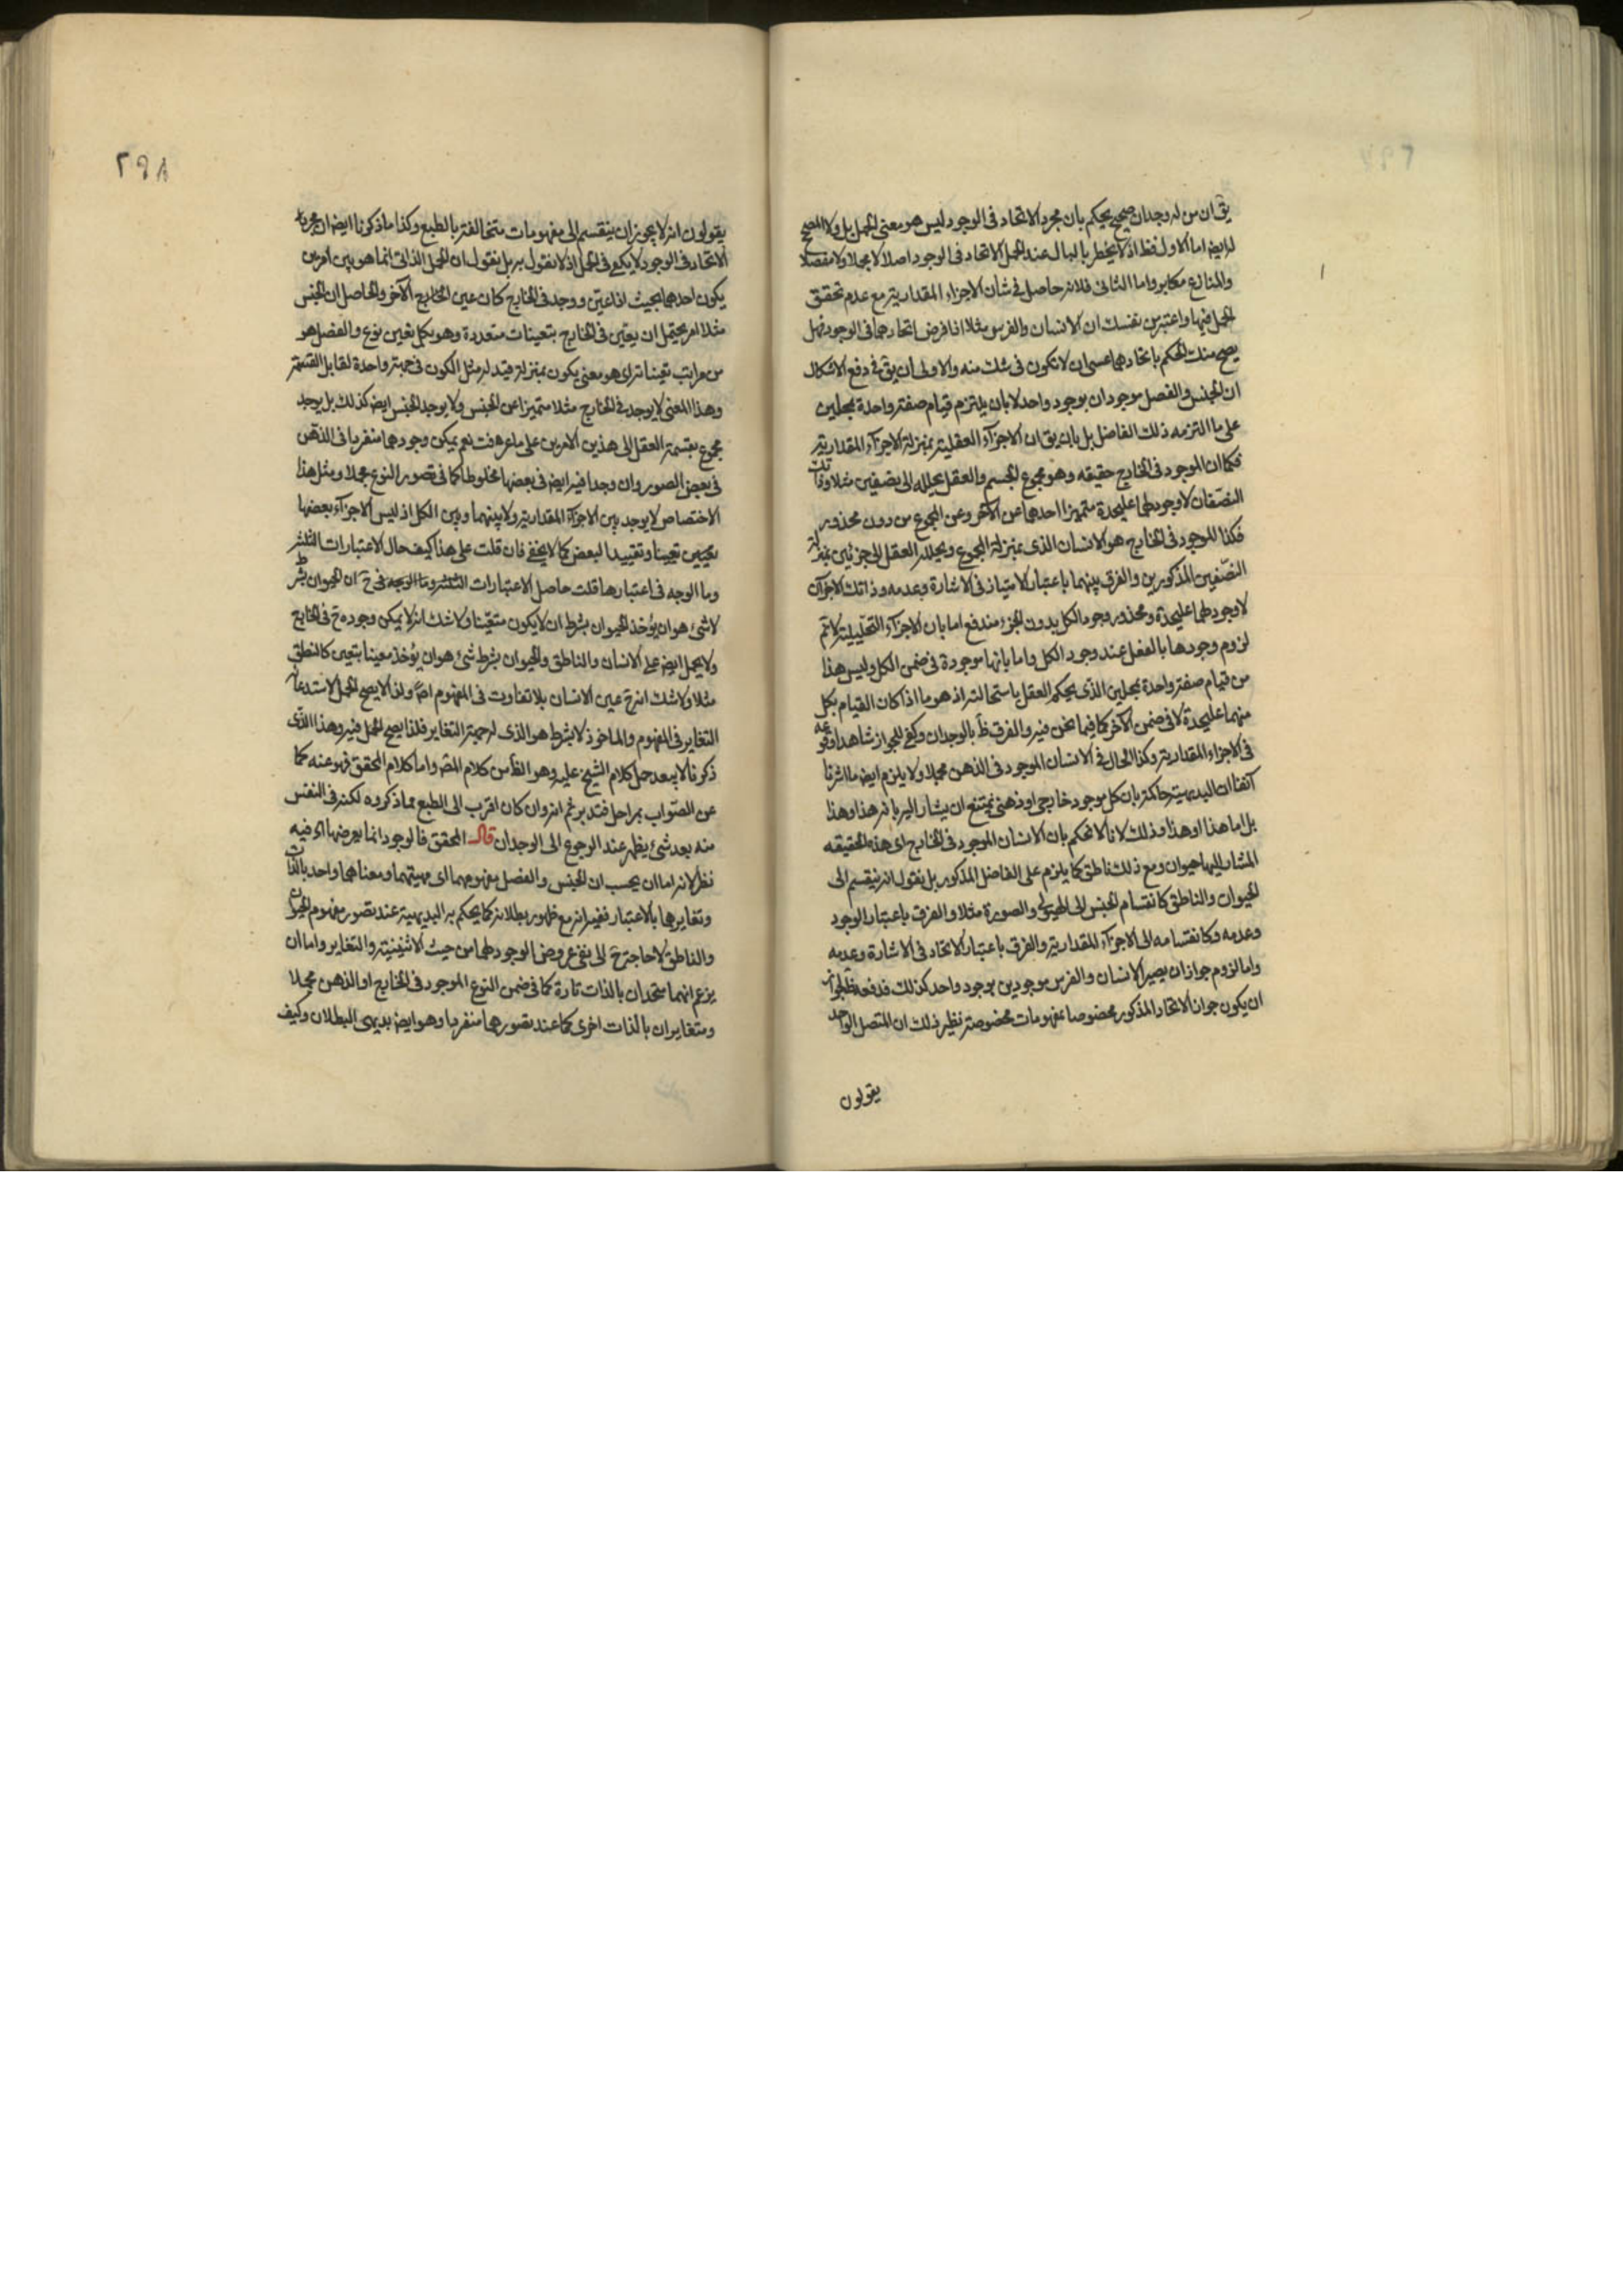 يق ان من له وجدان صحيح يحكم بان مجرد الاتحاد فى الوجود ليس هو معنى الحمل بل ولا المصحح
له ايض اما الاول فظ اذ لا يخطر بالبال عند الحمل الاتحاد فى الوجود اصلا لا مجملا ولا مفصلا
والمنازع مكابر واما الثانى فلانه حاصل فى شان الاجزاء المقدارية مع عدم تحقق
الحمل فيها واعتبر من نفسك ان الانسان والفرس مثلا اذا فرض اتحادهما فى الوجود فهل
يصح منك الحكم باتحادهما عسى ان لا تكون فى شك منه والاولى ان يق فى دفع الاشكال
ان الجنس والفصل موجودان بوجود واحد لا بان يلتزم قيام صفة واحدة بمحلين
على ما التزمه ذلك الفاضل بل بان يق ان الاجزاء العقلية بمنزلة الاجزاء المقدارية
فكما ان الموجود فى الخارج حقيقه وهو مجموع الجسم والعقل يحلله الى نصفين مثلا وذانك
النصفان لا وجود لهما عليحدة متميزا احدهما عن الاخر وعن المجموع من دون محذور
فكذا الموجود فى الخارج هو الانسان الذى بمنزلة المجموع ويحلله العقل الى جزئين بمنزلة
النصفين المذكورين والفرق بينهما باعتبار الامتياز فى الاشارة وعدمه وذانك الاجزآن
لا وجود لهما عليحدة ومحذور وجود الكل بدون الجزء مندفع اما بان الاجزاء التحليلية لا تم
لزوم وجودها بالفعل عند وجود الكل واما بانها موجودة فى ضمن الكل وليس هذا
من قيام صفة واحدة بمحلين الذى يحكم العقل باستحالته اذ هو ما اذا كان القيام بكل
منهما عليحدة لا فى ضمن الآخر كما فيما نحن فيه والفرق ظ بالوجدان وكفى للجواز شاهدا وقوعه
فى الاجزاء المقدارية وكذا الحال فى الانسان الموجود فى الذهن مجملا ولا يلزم ايض ما اشرنا
آنفا ان البديهية حاكمة بان كل موجود خارجى او ذهنى يمتنع ان يشار اليه بانه هذا وهذا
بل اما هذا او هذا وذلك لانا لا نحكم بان الانسان الموجود فى الخارج اى هذه الحقيقه
المشار اليها حيوان ومع ذلك ناطق كما يلزم على الفاضل المذكور بل نقول انه ينقسم الى
الحيوان والناطق كانقسام الجنس الى الهيولى والصورة مثلا والفرق باعتبار الوجود
وعدمه وكانقسامه الى الاجزاء المقدارية والفرق باعتبار الاتحاد فى الاشارة وعدمه
واما لزوم جواز ان يصير الانسان والفرس موجودين بوجود واحد كذلك فدفعه ظ لجواز
ان يكون جواز الاتحاد المذكور مخصوصا بمفهومات مخصوصة نظير ذلك ان المتصل الواحد
يقولون
٢٩٨
يقولون انه لا يجوز ان ينقسم الى مفهومات متخالفة بالطبع وكذا ما ذكرنا ايضا ان مجرد
الاتحاد فى الوجود لا يكفى فى الحمل اذ لا نقول به بل نقول ان الحمل الذاتى انما هو بين امرين
يكون احدهما بحيث اذا تعين ووجد فى الخارج كان عين الخارج الآخر والحاصل ان الجنس
مثلا امر يحتمل ان يتعين فى الخارج بتعينات متعددة وهو بكل تعين نوع والفصل هو
من مراتب تعيناته اى هو معنى يكون بمنزلة قيد له مثل الكون فى جهة واحدة لقابل القسمة
وهذا المعنى لا يوجد فى الخارج مثلا متميزا عن الجنس ولا يوجد الجنس ايض كذلك بل يوجد
مجموع بقسمة العقل الى هذين الامرين على ما عرفت نعم يمكن وجودهما منفردا فى الذهن
فى بعض الصور وان وجدا فيه ايض فى بعضها مخلوطا كما فى تصور النوع مجملا ومثل هذا
الاختصاص لا يوجد بين الاجزاء المقدارية ولا بينهما وبين الكل اذ ليس الاجزاء بعضها
تعيينا وتقييدا لبعض كما لا يخفى فان قلت على هذا كيف حال الاعتبارات الثلثة
وما الوجه فى اعتبارها قلت حاصل الاعتبارات الثلثة وما الوجه فى ح ان الحيوان بشرط
لا شئ هو ان يؤخذ الحيوان بشرط ان لا يكون متعينا ولا شك انه لا يمكن وجوده ح فى الخارج
ولا يحمل ايض على الانسان والناطق والحيوان بشرط شئ هو ان يؤخذ معينا بتعين كالنطق
مثلا ولا شك انه ح عين الانسان بلا تفاوت فى المفهوم اص ولذا لا يصح الحمل لاستدعائه
التغاير فى المفهوم والماخوذ لا بشرط هو الذى له جهة التغاير فلذا يصح الحمل فيه وهذا الذى
ذكرنا لا يبعد حمل كلام الشيخ عليه وهو الظ من كلام المص واما كلام المحقق فهو عنه كما
عن الصواب بمراحل فتدبر ثم انه وان كان اقرب الى الطبع مما ذكروه لكنه فى النفس
منه بعد شئ يظهر عند الرجوع الى الوجدان قال المحقق فالوجود انما يعرضها اه فيه
نظر لانه اما ان يحسب ان الجنس والفصل مفهومهما اى مهيتهما ومعناهما واحد بالذات
وتغايرهما بالاعتبار ففيه انه مع ظهور بطلانه كما يحكم به البديهية عند تصور مفهوم الحيوان
والناطق لا حاجة ح الى نفى عروض الوجود لهما من حيث الاثنينية والتغاير واما ان
يزعم انهما متحدان بالذات تارة كما فى ضمن النوع الموجود فى الخارج او الذهن مجملا
ومتغايران بالذات اخرى كما عند تصورهما منفردا وهو ايض بديهى البطلان وكيف